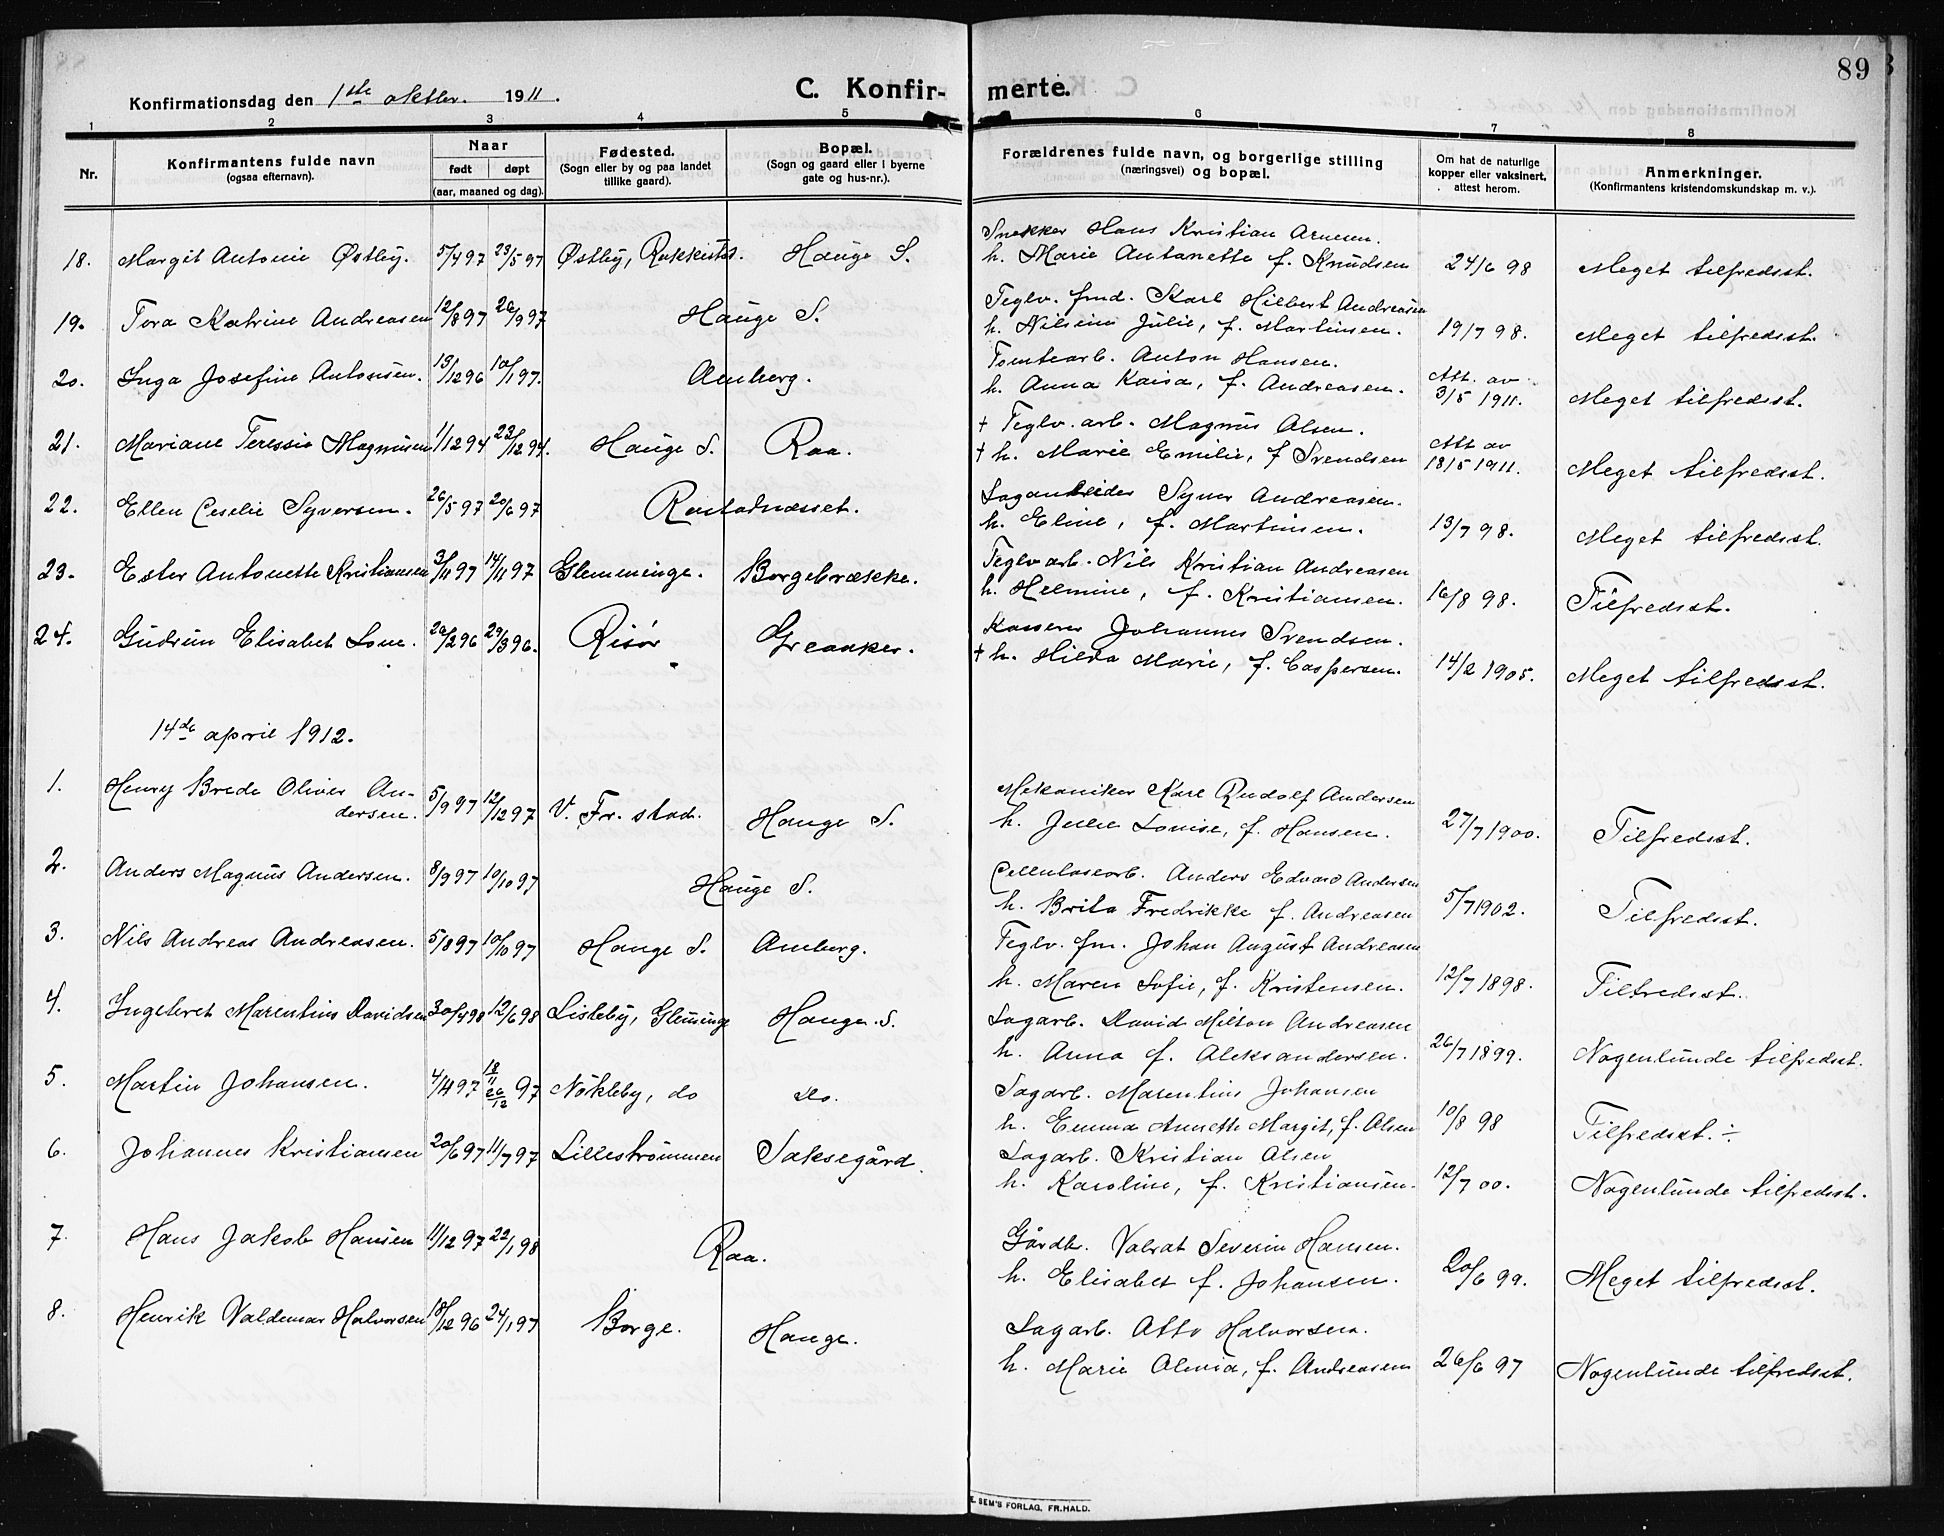 89
Konfirmationsdag den 1ste oktbr. 1911.
C. Konfirmerte.
1 2 3 4 5 6 7 8
Nr.
Konfirmantens fulde navn
(ogsaa efternavn).
Naar
født døpt
(aar, maaned og dag).
Fødested.
(Sogn eller by og paa landet
tillike gaard).
Bopæl.
(Sogn og gaard eller i byerne
gate og hus-nr.).
Forældrenes fulde navn, og borgerlige stilling
(næringsvei) og bopæl.
Om hat de naturlige
kopper eller vaksinert,
attest herom.
Anmerkninger.
(Konfirmantens kristendomskundskap m. v.).
Snekker Hans Kristian Arnesen.
18. Margit Antonie Østby. 5/4 97 23/5 97 Østby, Rokkestad. Hauge S. h. Marie Antonette f. Knudsen 24/6 98 Meget tilfredsst.
Teglv. fmd. Karl Hilbert Andreasen
19. Tora Katrine Andreasen 12/8 97 26/9 97 Hauge S. h. Nilsine Julie, f. Martinsen. 19/7 98. Meget tilfredsst.
Tomtearb. Anton Hansen.
20. Inga Josefine Antonsen. 13/12 96 10/1 97. Amberg. h. Anna Kaisa, f. Andreasen. Att. av 3/5 1911. Meget tilfredsst.
† Teglv. arb. Magnus Olsen.
21. Mariane Teressie Magnusen 1/12 94 23/12 94. Hauge S. Raa. † h. Marie Emilie, f Svendsen Att av 18/5 1911. Meget tilfredsst.
Sagarbeider Syver Andreasen.
22. Ellen Ceselie Syversen. 26/5 97 20/6 97 Rostadnæsset. h. Eline, f. Martinsen. 13/7 98. Meget tilfredsst.
Teglv arb. Nils Kristian Andreasen
23. Ester Antonette Kristiansen 3/11 97 14/11 97 Glemminge. Borgebrække. h. Helmine, f. Kristiansen. 16/8 98. Tilfredsst.
Kasserer Johannes Svendsen.
24. Gudrun Elisabet Lone. 26/2 96 29/3 96. Risør Greaaker. † h. Hilda Marie, f. Caspersen. 14/2 1905. Meget tilfredsst.
14de april 1912.
1. Henry Brede Oliver An- Mekaniker Karl Rudolf Andersen
dersen. 5/9 97 12/12 97 V. Fr. stad. Hauge S. h. Julie Louise, f. Hansen. 27/7 1900. Tilfredsst.
2. Anders Magnus Andersen. 8/9 97 10/10 97 Hauge S. Cellulosearb. Anders Edvard Andersen
h. Brita Fredrikke f. Andreasen 5/7 1902. Tilfredsst.
3. Nils Andreas Andreasen. 5/8 97 10/10 97 Hauge S. Amberg. Teglv. fm. Johan August Andreasen
h. Maren Sofie, f. Kristensen. 12/7 1898. Tilfredsst.
4. Ingebret Marentius Davidsen 30/4 98 12/6 98 Lisleby, Glemminge Hauge S. Sagarb. David Milton Andreasen
h. Anna f. Aleksandersen. 26/7 1899. Nogenlunde tilfredsst.
5. Martin Johansen. 4/4 97. 18/11 26/12 97 Nökleby, do do. Sagarb. Marentius Johansen
h. Emma Annette Margit, f. Olsen 10/8 98 Tilfredsst. ÷
6. Johannes Kristiansen 20/6 97 11/7 97 Lillestrømmen Saksegård. Sagarb. Kristian Olsen
h. Karoline, f. Kristiansen. 12/7 00. Nogenlunde tilfredsst.
7. Hans Jakob Hansen 11/12 97 22/1 98 Raa. Gårdbr. Valrat Severin Hansen.
h. Elisabet f. Johansen. 20/6 99. Meget tilfredsst.
8. Henrik Valdemar Halvorsen 18/12 96 24/1 97 Borge. Hauge. Sagarb. Otto Halvorsen.
h. Marie Olivia, f. Andreasen 26/6 97 Nogenlunde tilfredsst.
E. SEM'S FORLAG, FR.HALD.